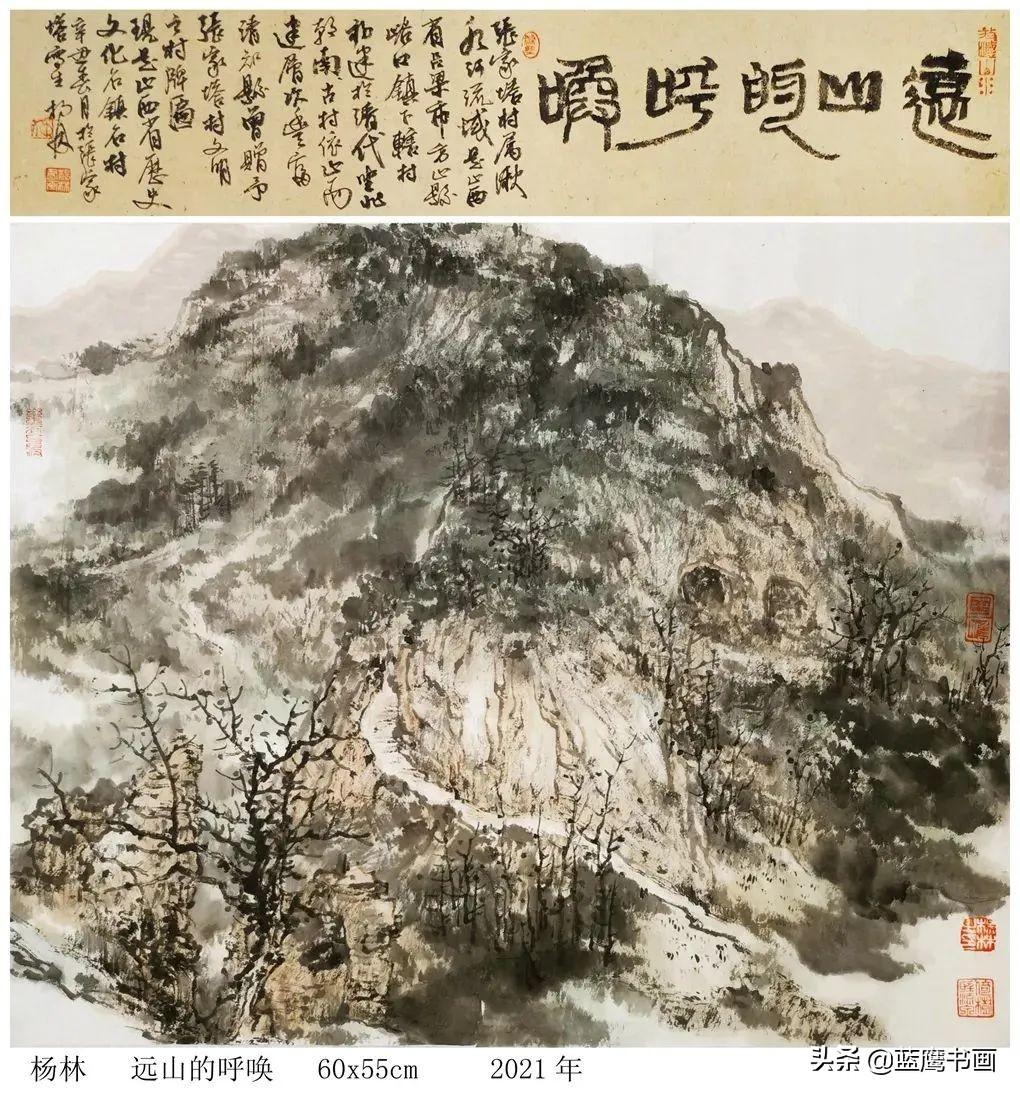 遠山的呼喚
張家塔村屬湫
水河流域是山西
省呂梁市方山縣
峪口鎮下轄村
初建於清代坐北
朝南古村依山而
建層次豐富
清知縣曾贈予
張家塔村文明
之村牌匾
現是山西省歷史
文化名鎮名村
辛丑春月於張家
塔寫生 楊林
杨林 远山的呼唤 60x55cm 2021年
头条 @蓝鹰书画